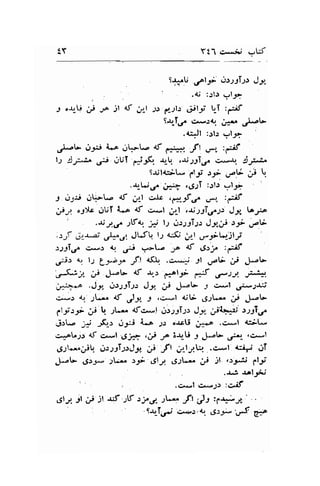 کتاب نخست ۳۴۶ ۴۳
پول درآوردن خواهی نامید؟
جواب داد: نه.
گفتم: آیا توافق داریم در این که از هر فن فایده و
حاصلی معین بدست می‌آید؟
جواب داد: البته.
گفتم: پس اگر ببینیم که صاحبان همهٔ فنون حاصلی
مشترک بدست می‌آورند، باید بگوئیم آنان فنی مشترک را
با فن خاص خود توأم ساخته‌اند؟
جواب داد: آری، چنین می‌نماید.
گفتم: پس می‌گوییم، علت این که صاحبان فنون و
هنرها پول درمی‌آورند، این است که همهٔ آنان علاوه برفن
خاص خود فن پول درآوردن را نیز بکار می‌برند.
تراسیماخوس این نکته را با کمال بی‌میلی تصدیق کرد.
گفتم: مزدی که هر صاحب فنی به دست می‌آورد
حاصل فن خاص او نیست. بلکه اگر موضوع را به دقتی
بیشتر بررسی کنیم خواهیم دید که حاصل فن پزشکی
تندرستی است و حاصل فن پول درآوردن پول. همچنین
حاصل فن معماری خانه است، و پولی که معمار به دست
می‌آورد نتیجهٔ فن پول درآوردن است که معمار با فن خود توأم
ساخته است. همین قاعده در همهٔ فنون دیگر نیز صادق
است، یعنی حاصل و فایدهٔ هر فن، چیزی است که درماهیت
آن نهفته است. بنابراین اگر فن پول درآوردن با فن معماری
توأم نشود، از فن معماری برای خود معمار سودی حاصل
نخواهد شد.
گفت: درست است.
پرسیدم: ولی اگر معمار بی‌مزد کار کند از فن او برای
هیچ کس سودی به دست نمی‌آید؟